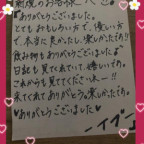 新規のお客様へ
♥ありがとうございました。
とてもおもしろい方で、優しい方
で、本当に良かったし、楽しかった!!
飲み物もありがとうございました♪
日記も見てくれていて嬉しいです。
これからも見ててくださいねー!!
来てくれてありがとう。楽しかったです。
♥ありがとうございました♥